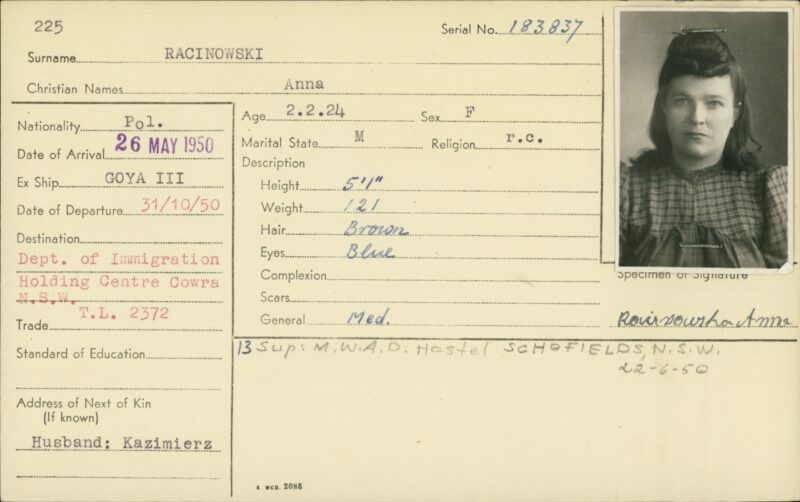 225
Serial No. 183837
Surname RACINOWSKI
Christian Names Anna
Nationality Pol.
Date of Arrival 26 MAY 1950
Ex Ship GOYA III
Date of Departure 31/10/50
Destination
Dept. of Immigration
Holding Centre Cowra
N.S.W.
T.L. 2372
Trade
Standard of Education
Address of Next of Kin
(If known)
Husband: Kazimierz
Age 2.2.24 Sex F
Marital State M Religion r.c.
Description
Height 5'1"
Weight 121
Hair Brown
Eyes Blue
Complexion
Scars
General Med.
Specimen of Signature
Racinowska Anna
13 Sup: M.W.A.D. Hostel SCHOFIELDS, N.S.W.
22-6-50
S. MCD. 2085